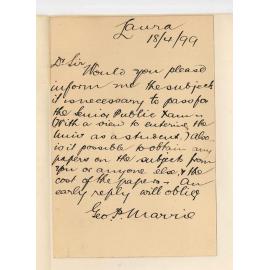 Laura
18/4/99
Dr Sir
Would you please
inform me the subjects
it is necessary to pass for
the Senior Public Exam n
With a view to entering the
Univ as a student, & also
is it possible to obtain any
papers on the subject from
you or anyone else, & the
cost of the papers – An
early reply will oblige
Geo